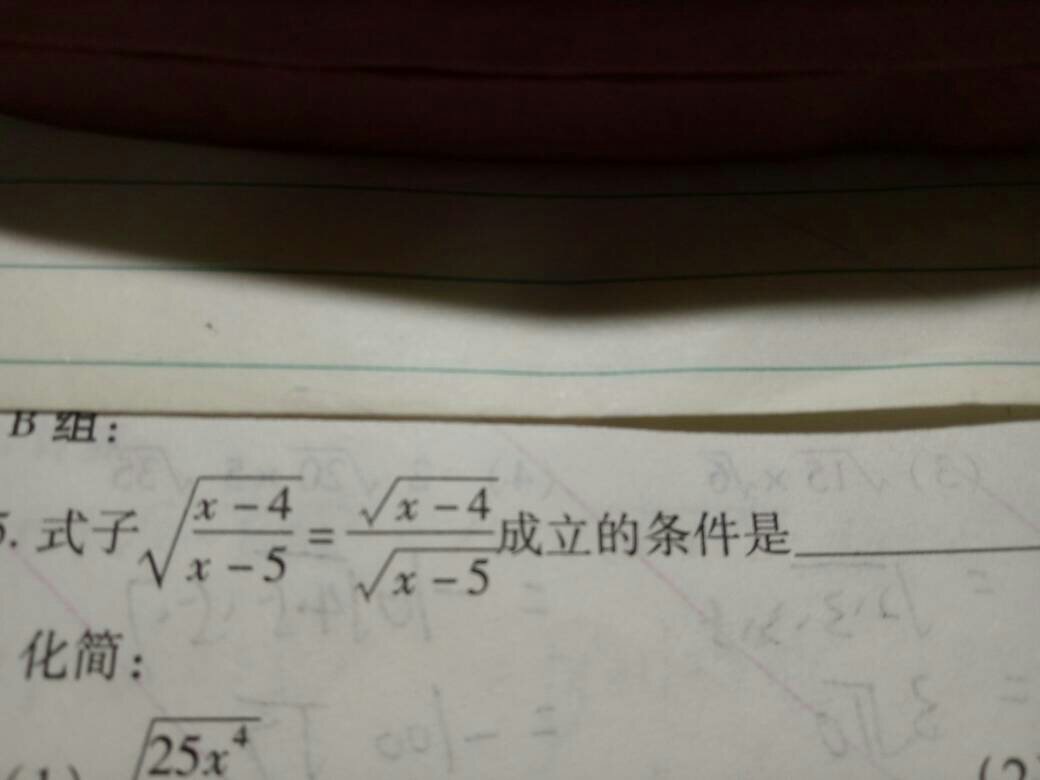 B 组：
5. 式子√((x－4)/(x－5)) = √(x－4)/√(x－5) 成立的条件是________
化简：
√(25x⁴)